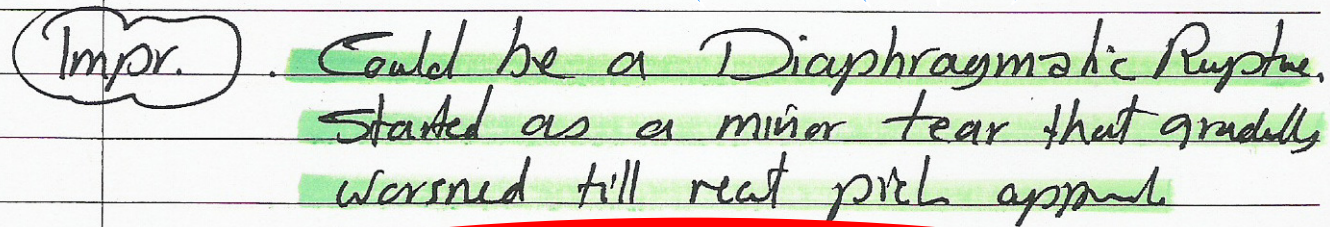 Impr. . Could be a Diaphragmatic Rupture.
Started as a minor tear that gradully
worsned till